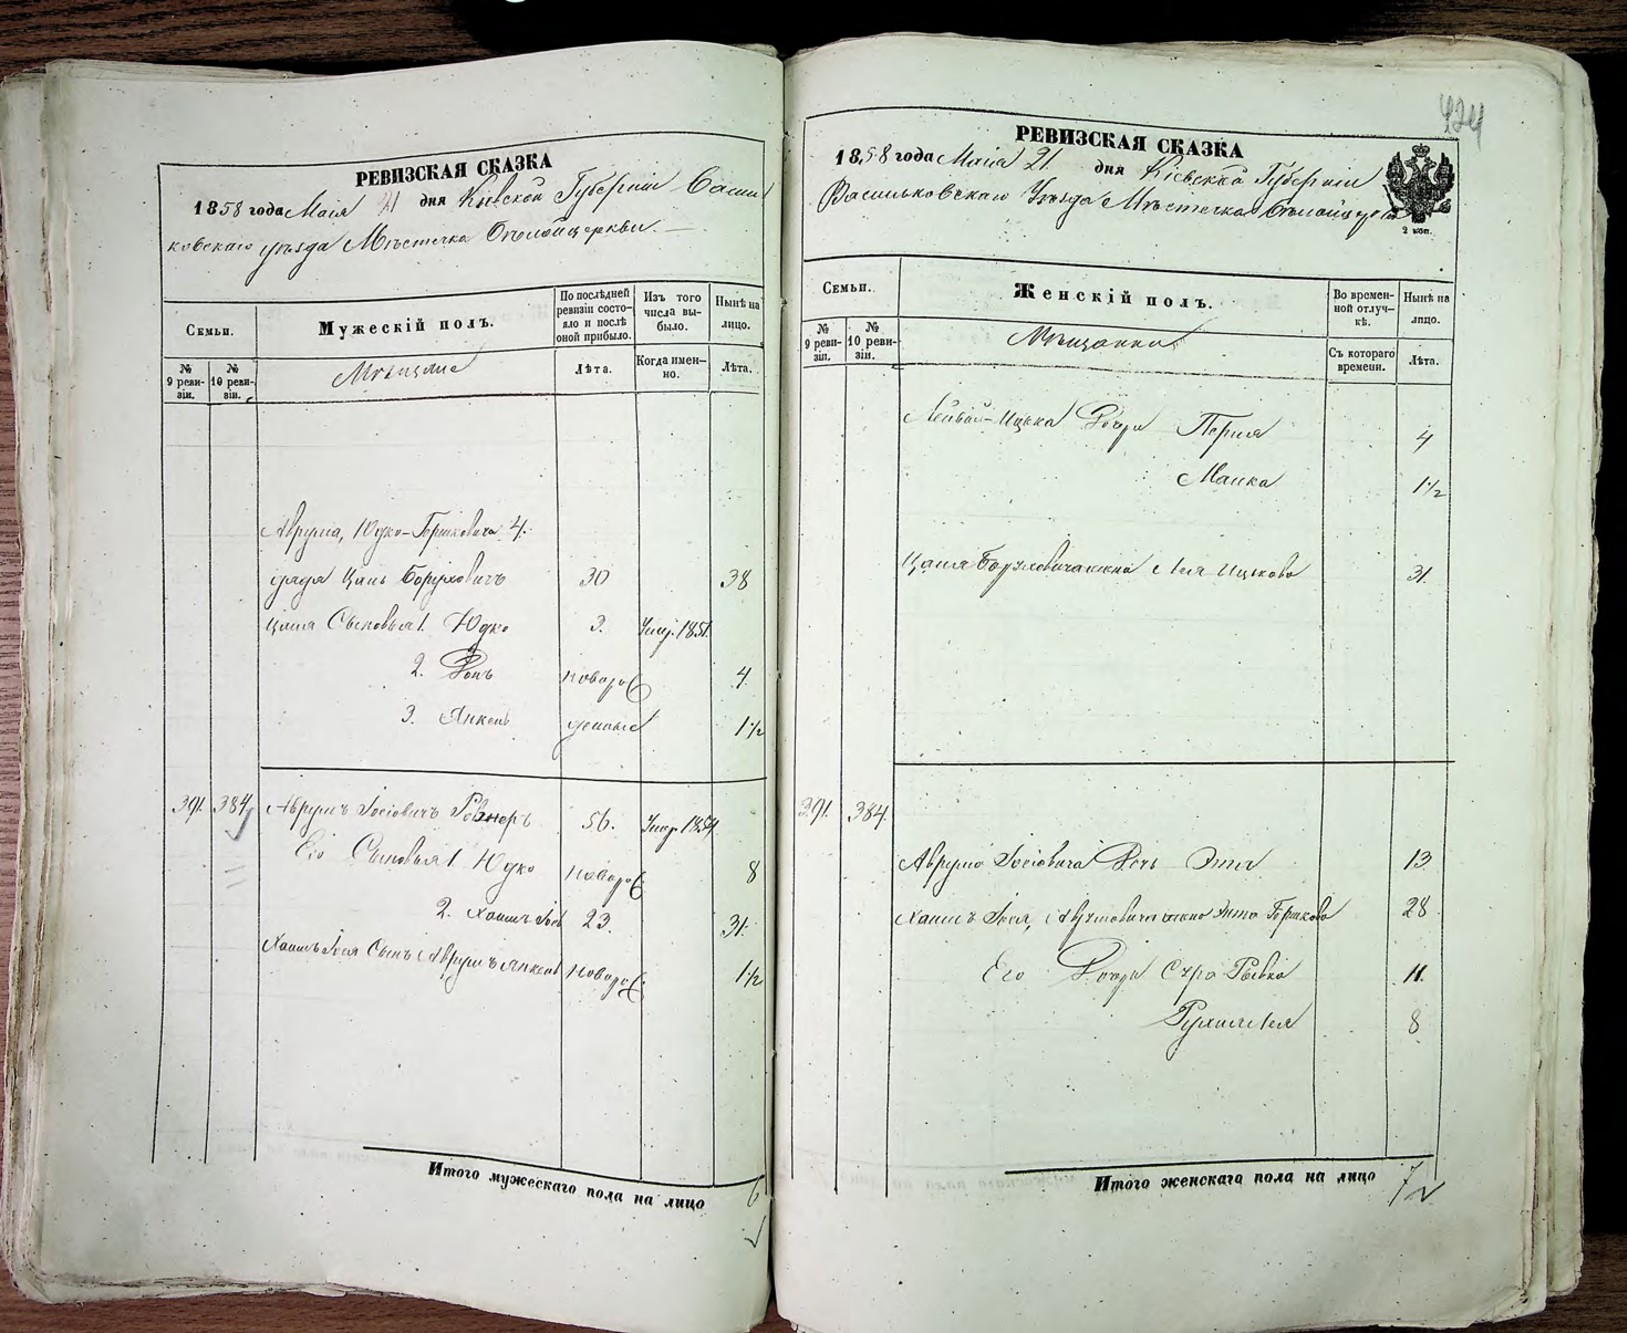 РЕВИЗСКАЯ СКАЗКА
1858 года Маія 21 дня Кіевской Губерніи Василь
ковскаго уѣзда Мѣстечка Бѣлойцеркви.
Семьи.
Мужескій полъ.
По послѣдней ревизіи состояло и послѣ оной прибыло.
Изъ того числа выбыло.
Нынѣ на лицо.
№ 9 ревизіи.
№ 10 ревизіи.
Мѣщане
Лѣта.
Когда именно.
Лѣта.
Аврума, Юдко-Гершковича 4.
дядя Цаль Боруховичъ 30 38
Цаля Сыновья 1. Юдко 3. Умер. 1851.
2. 4.
3. Янкель 1 1/2
391. 384. Аврумъ Іосіовичъ 56. Умер. 1854
Его Сыновья 1 Юдко новорож 8
2. Хаимъ Іось 23. 31.
Хаимъ Іося Сынъ Аврумъ Янкель новорож 1 1/2
Итого мужескаго пола на лицо 6
424
РЕВИЗСКАЯ СКАЗКА
1858 года Маія 21. дня Кіевской Губерніи
Васильковскаго Уѣзда Мѣстечка Бѣлойцеркви
2 коп.
Семьи.
Женскій полъ.
Во временной отлучкѣ.
Нынѣ на лицо.
№ 9 ревизіи.
№ 10 ревизіи.
Мѣщанки
Съ котораго времени.
Лѣта.
Лейбы-Ицька Дочери Перля 4
Малка 1 1/2
Цаля Боруховича жена Лея Ицькова 31.
391. 384.
Аврума Іосіовича Дочь Этя 13
Хаимъ Іося, Аврумовича жена Этя Гершкова 28
Его Дочери Сура Рывка 11.
Рухля Лея 8
Итого женскаго пола на лицо 7